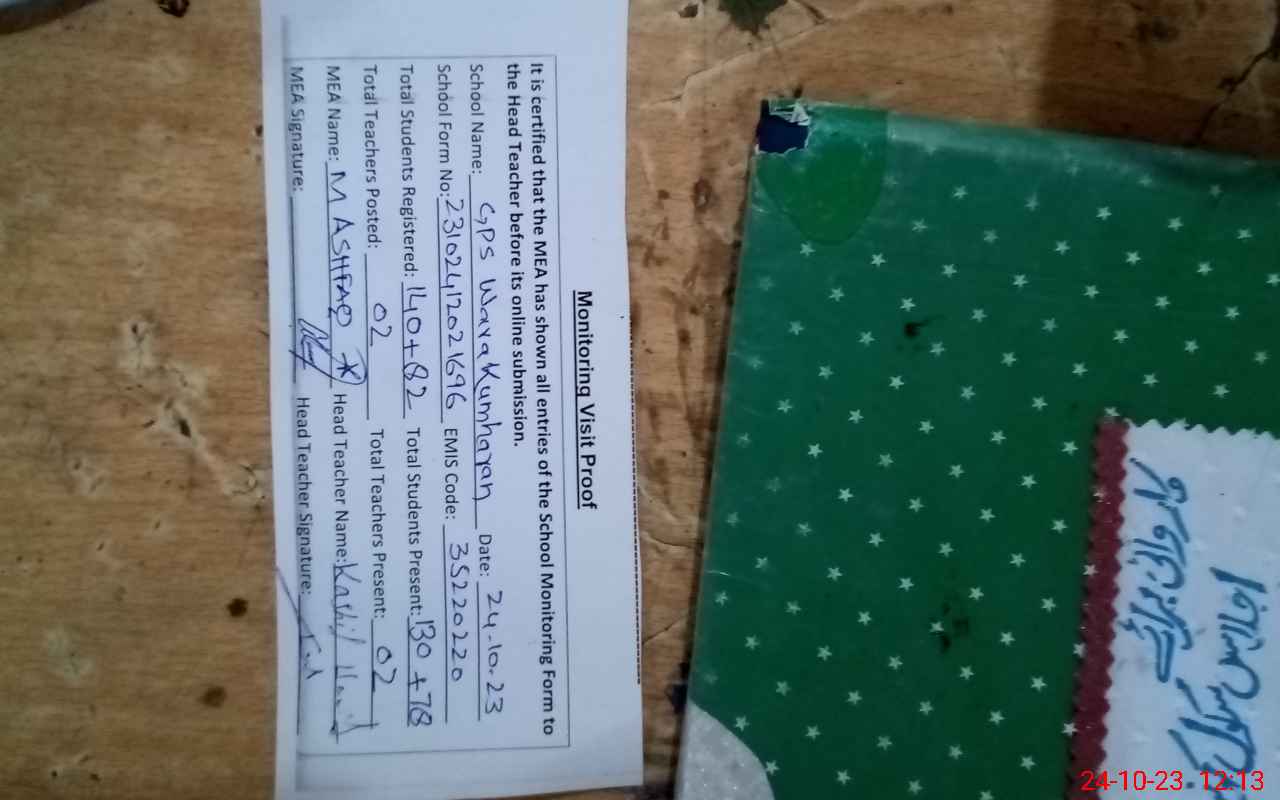 Monitoring Visit Proof
It is certified that the MEA has shown all entries of the School Monitoring Form to
the Head Teacher before its online submission.
School Name: GPS Wara Kumharan Date: 24.10.23
School Form No: 231024120216 96 EMIS Code: 35220220
Total Students Registered: 140+82 Total Students Present: 130+78
Total Teachers Posted: 02 Total Teachers Present: 02
MEA Name: M ASHFAQ Head Teacher Name: Kashif
MEA Signature: Head Teacher Signature:
کاروائی برائے
اجلاس سکول
24-10-23 12:13